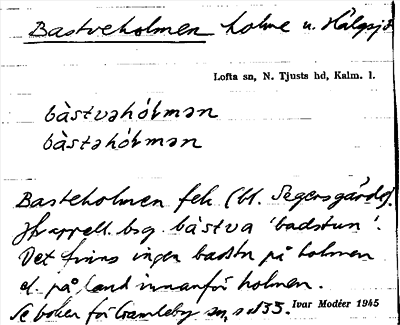 Bastveholmen holme u. Hälgsjö
Lofta sn, N. Tjusts hd, Kalm. l.
bàstvəhól̵mən
bàstəhól̵mən
Basteholmen fek (bl. Segersgärde).
Jfr appell. bsg. bàstva 'badstun'.
Det finns ingen badstu på holmen
el. på land innanför holmen.
Se boken för Gamleby sn, s. 135. Ivar Modéer 1945